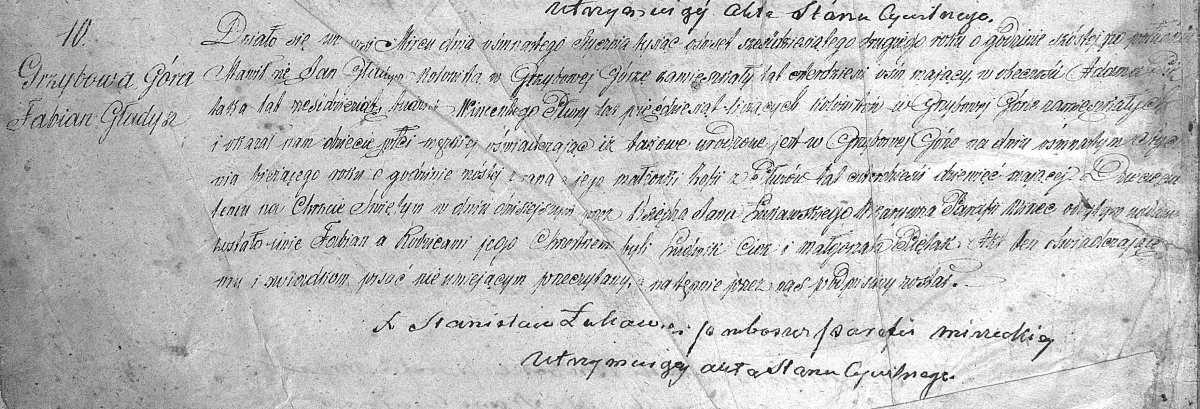 utrzymuiący akta Stanu Cywilnego.
10.
Grzybowa Góra
Fabian Gładysz
Działo się we wsi Mircu dnia osmnastego Stycznia tysiąc ośmset sześćdziesiątego drugiego roku o godzinie szóstej po południu
Stawił się Jan Gładysz Kolonista w Grzybowej Górze zamieszkały lat czterdzieści ośm mający, w obecności Adama
lat i Wincentego Pluty lat pięćdziesiąt liczących kolonistów w Grzybowej Górze zamieszkałych
i okazał nam dziecię płci męskiej oświadczając iż takowe urodzone jest w Grzybowej Górze na dniu osmnastym
nia bieżącego roku o godzinie szóstej z rana z jego małżonki Zofii z Plutów lat czterdzieści dziewięć mającej. Dziecięciu
temu na Chrzcie Swiętym w dniu dzisiejszym przez Księdza Jana Parafii Mirzec odbytym nadane
zostało imie Fabian a Rodzicami jego Chrzestnemi byli i Małgorzata Akt ten oświadczającemu
mu i świadkom pisać nieumiejącym przeczytany, następnie przez nas podpisany został.
X Stanisław proboszcz parafii mirzeckiej
utrzymuiący akta Stanu Cywilnego.